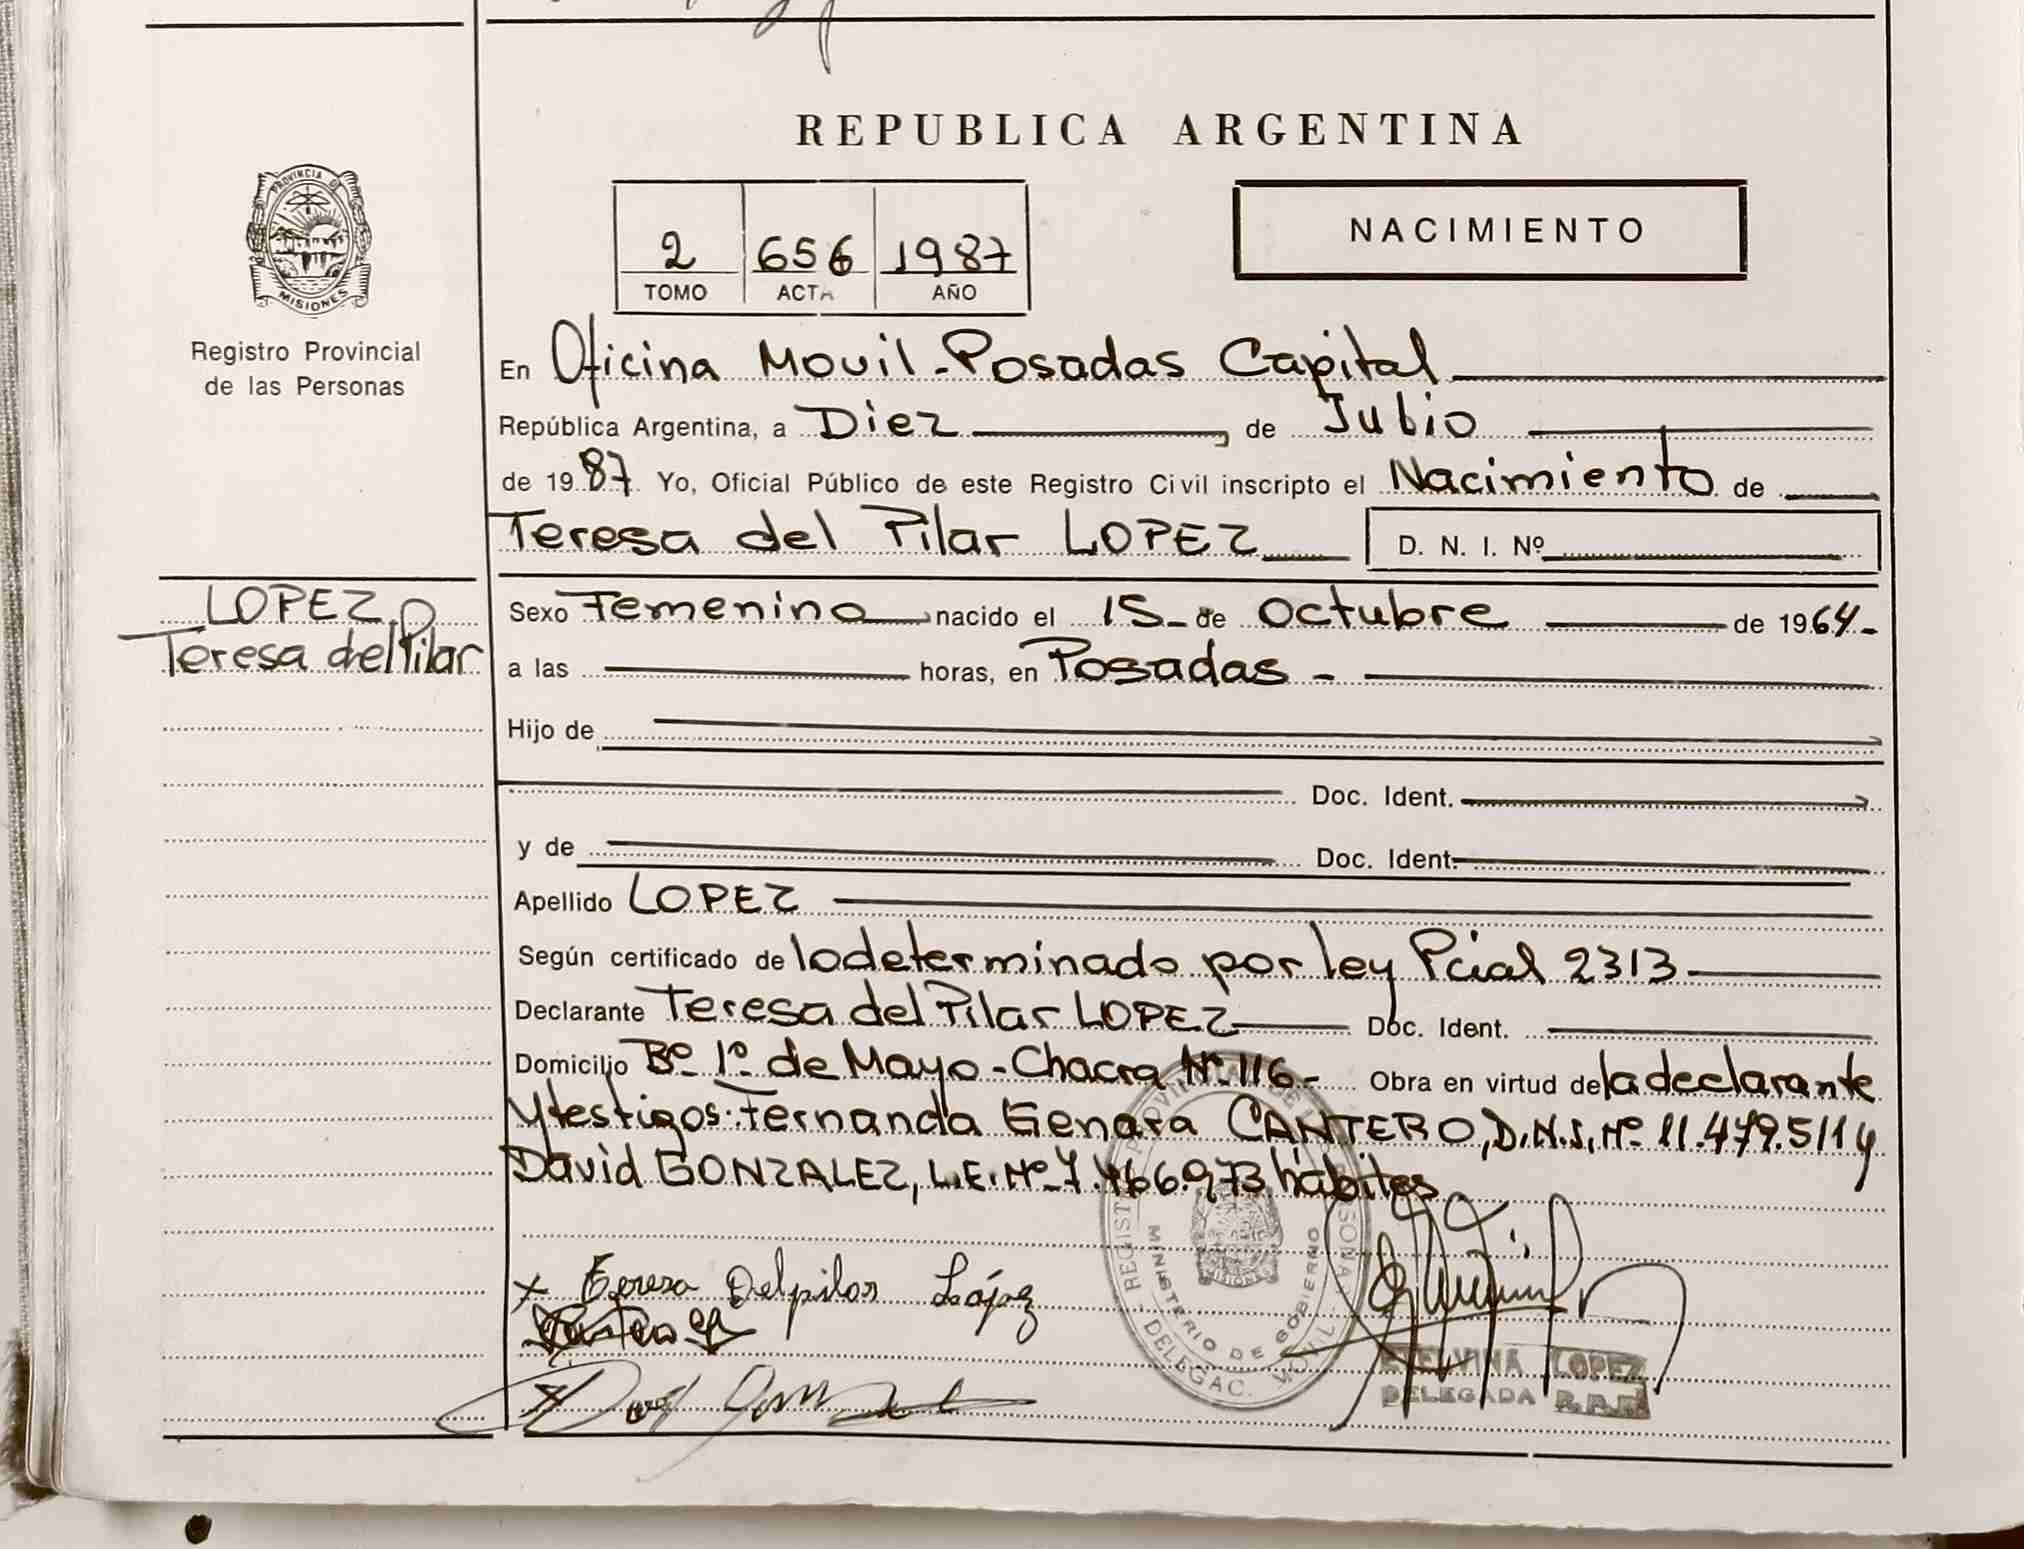 REPUBLICA ARGENTINA
PROVINCIA DE
MISIONES
Registro Provincial
de las Personas
2 656 1987
TOMO ACTA AÑO
NACIMIENTO
En Oficina Movil-Posadas Capital
República Argentina, a Diez de Julio
de 1987. Yo, Oficial Público de este Registro Civil inscripto el Nacimiento de
Teresa del Pilar LOPEZ D. N. I. Nº
LOPEZ
Teresa del Pilar
Sexo Femenino nacido el 15- de Octubre de 1964-
a las horas, en Posadas -
Hijo de
Doc. Ident.
y de Doc. Ident.
Apellido LOPEZ
Según certificado de lo determinado por ley Pcial 2313
Declarante Teresa del Pilar LOPEZ Doc. Ident.
Domicilio Bº 1º de Mayo - Chacra Nº 116- Obra en virtud de la declarante
y testigos: Fernanda Genara CANTERO, D.N.I. Nº 11.479.511 y
David GONZALEZ, L.E. Nº 7.466.973 hábiles
x Teresa Delpilar López
REGISTRO PROVINCIAL DE LAS PERSONAS
MINISTERIO DE GOBIERNO
MISIONES
DELEGAC. MOVIL
ETELVINA LOPEZ
DELEGADA R.P.P.